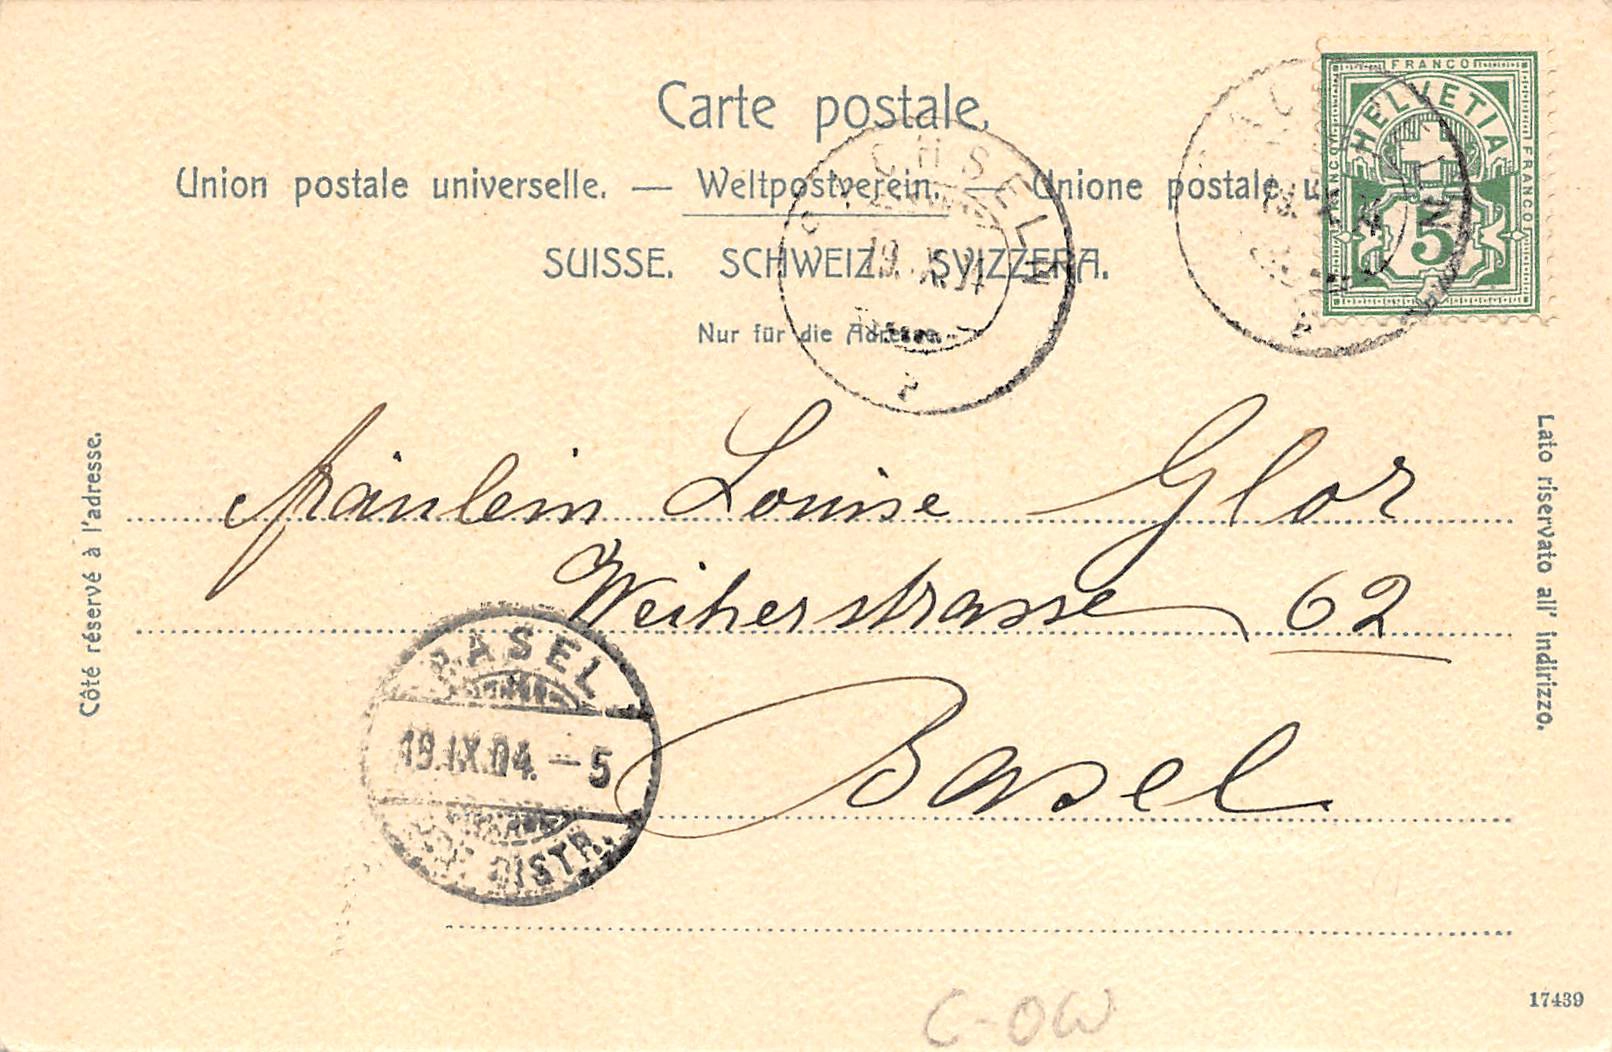 Carte postale.
Union postale universelle. — Weltpostverein. — Unione postale
SUISSE. SCHWEIZ. SVIZZERA.
Nur für die Adresse.
FRANCO
HELVETIA
FRANCO
FRANCO
5
SACHSELN
19. IX. 04
Côté réservé à l'adresse.
Lato riservato all' indirizzo.
Fräulein Louise Glor
Weiherstrasse 62
Basel
BASEL
19.IX.04. – 5
DISTR.
C-OW
17439